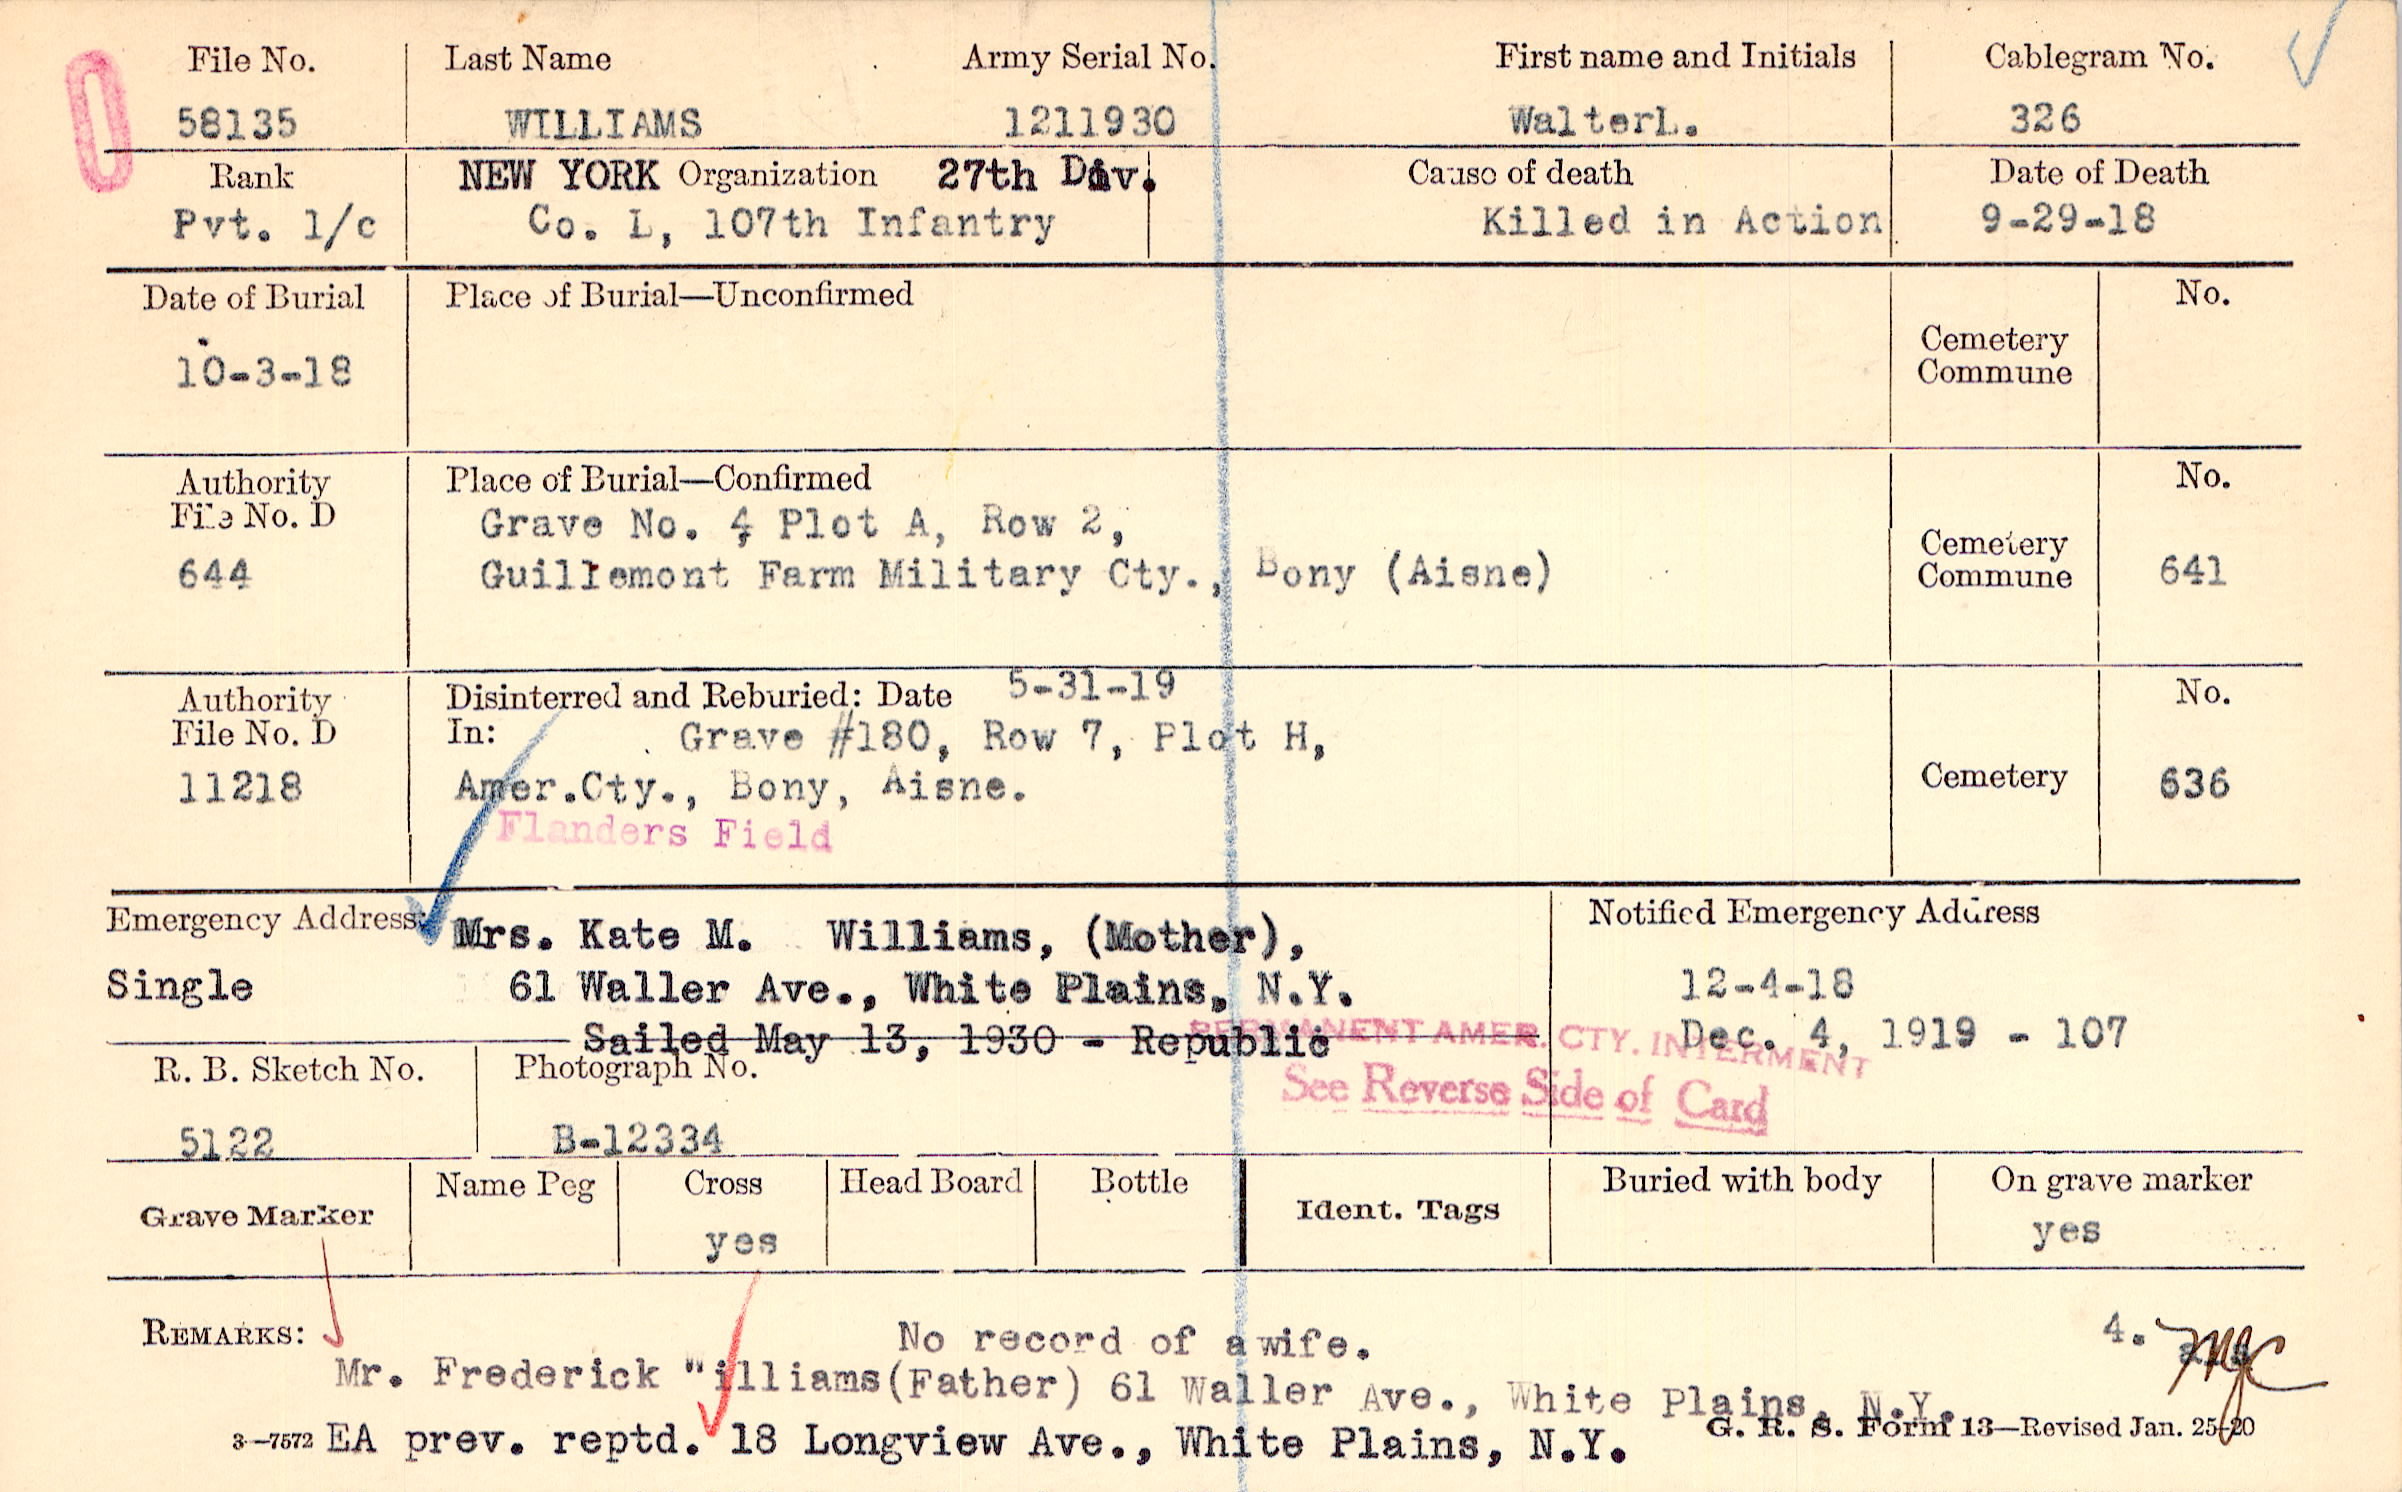 File No. Last Name Army Serial No. First name and Initials Cablegram No.
58135 WILLIAMS 1211930 WalterL. 326
Rank NEW YORK Organization 27th Div. Cause of death Date of Death
Pvt. 1/c Co. L, 107th Infantry Killed in Action 9-29-18
Date of Burial Place of Burial—Unconfirmed No.
10-3-18 Cemetery
Commune
Authority Place of Burial—Confirmed No.
File No. D Grave No. 4 Plot A, Row 2,
644 Guillemont Farm Military Cty., Bony (Aisne) Cemetery
Commune 641
Authority Disinterred and Reburied: Date 5-31-19 No.
File No. D In: Grave #180, Row 7, Plot H,
11218 Amer.Cty., Bony, Aisne. Cemetery 636
Flanders Field
Emergency Address: Mrs. Kate M. Williams, (Mother), Notified Emergency Address
Single 61 Waller Ave., White Plains, N.Y. 12-4-18
Sailed May 13, 1930 - Republic Dec. 4, 1919 - 107
PERMANENT AMER. CTY. INTERMENT
See Reverse Side of Card
R. B. Sketch No. Photograph No.
5122 B-12334
Grave Marker Name Peg Cross Head Board Bottle Ident. Tags Buried with body On grave marker
yes yes
REMARKS: No record of a wife. 4.
Mr. Frederick "illiams(Father) 61 Waller Ave., White Plains, N.Y.
3—7572 EA prev. reptd. 18 Longview Ave., White Plains, N.Y. G. R. S. Form 13—Revised Jan. 25-20